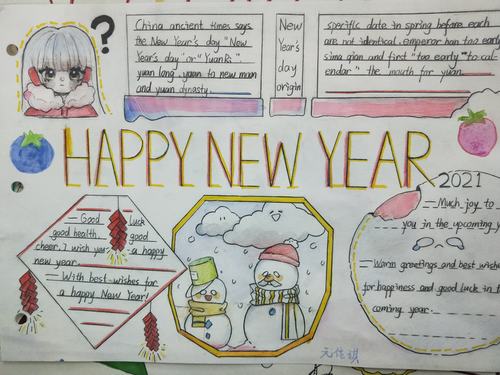 China ancient times says
the New Year's day "New
Year's day" or "YuanRi"
yuan long yuan to new moon
and yuan dynasty.
New
Year's
day
origin
specific date in spring before each
are not identical. emperor han too early
sima qian and first "too early" "to cal-
endar" the mouth for yuan
?
HAPPY NEW YEAR
Good luck
good health, good
cheer. I wish you a happy
new year.
With best-wishes for
a happy New Year!
2021
Much joy to
you in the upcoming y
Warm greetings and best wishe
for happiness and good luck in t
coming year.